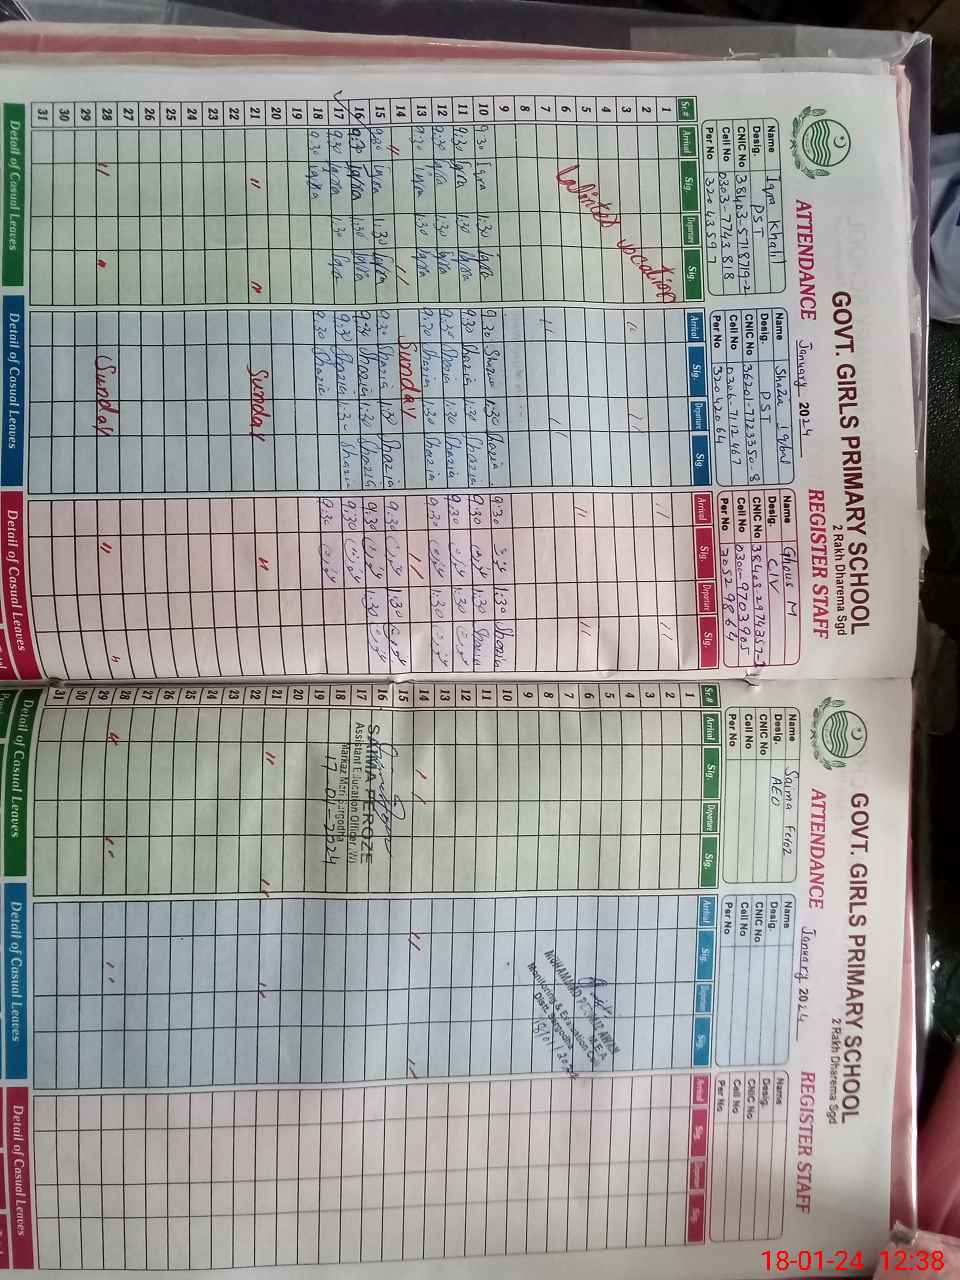 GOVT. GIRLS PRIMARY SCHOOL
2 Rakh Dharema Sgd
ATTENDANCE January 2024 REGISTER STAFF
Name Iqra Khalil
Desig. PST
CNIC No 38403-5718719-2
Cell No 0303-7743818
Per No 32043597
Name Shazia Iqbal
Desig. PST
CNIC No 36201-7723350-8
Cell No 0306-7112467
Per No 32042064
Name Ghous M
Desig. CIV
CNIC No
Cell No 0300-9703905
Per No
Sr.# Arrival Sig. Departure Sig. Arrival Sig. Departure Sig. Arrival Sig. Departure Sig.
1
2
3
4
5
6
7
8
Winter vocation
9
10 9:30 Iqra 1:30 Iqra 9:30 Shazia 1:30 Shazia 9:30 1:30 Shazia
11 9:30 Iqra 1:30 Iqra 9:30 Shazia 1:30 Shazia 9:30 1:30 Shazia
12 9:30 Iqra 1:30 Iqra 9:30 Shazia 1:30 Shazia 9:30 1:30
13 9:30 Iqra 1:30 Iqra 9:30 Shazia 1:30 Shazia 9:30 1:30
14 " " Sunday "
15 9:30 Iqra 1:30 Iqra 9:30 Shazia 1:30 Shazia 9:30 1:30
16 9:30 Iqra 1:30 Iqra 9:30 Shazia 1:30 Shazia 9:30 1:30
17 9:30 Iqra 1:30 Iqra 9:30 Shazia 1:30 Shazia 9:30
18 9:30 Iqra 9:30 Shazia 9:30
19
20
21 " " Sunday "
22
23
24
25
26
27
28 " " Sunday " "
29
30
31
Detail of Casual Leaves Detail of Casual Leaves Detail of Casual Leaves
GOVT. GIRLS PRIMARY SCHOOL
2 Rakh Dharema Sgd
ATTENDANCE January 2024 REGISTER STAFF
Name Saima Feroz
Desig. AEO
CNIC No
Cell No
Per No
Name
Desig.
CNIC No
Cell No
Per No
Name
Desig.
CNIC No
Cell No
Per No
Sr.# Arrival Sig. Departure Sig. Arrival Sig. Departure Sig. Arrival Sig. Departure Sig.
1
2
3
4
5
6
7
8
9
10
11
12
13
14
15
16
17
18
19
20
21
22
23
24
25
26
27
28
29
30
31
MUHAMMAD AWAN
M.E.A
Monitoring & Evaluation Cell
Distt. Sargodha
SAIMA FEROZE
Assistant Education Officer (W)
Markaz Mari Sargodha
17-01-2024
Detail of Casual Leaves Detail of Casual Leaves Detail of Casual Leaves
18-01-24 12:38